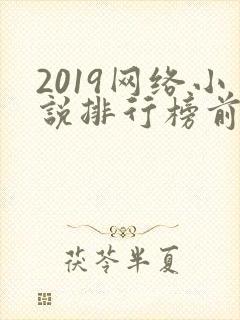 2019网络小
说排行榜前
茯苓半夏